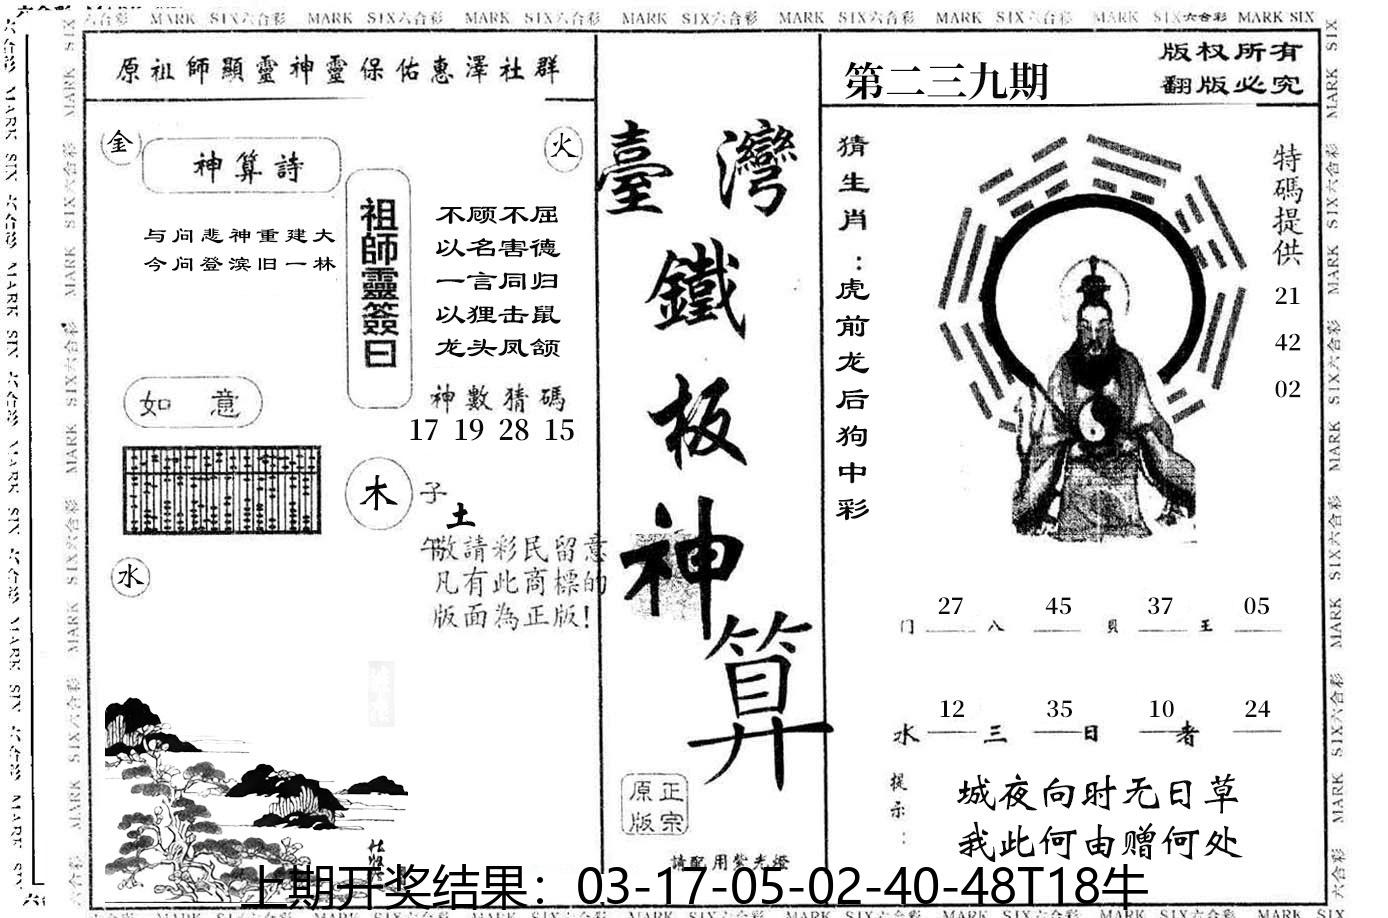 MARK SIX六合彩 MARK SIX六合彩 MARK SIX六合彩 MARK SIX六合彩 MARK SIX六合彩 MARK SIX六合彩 MARK SIX六合彩 MARK SIX
原祖師顯靈神靈保佑惠澤社群
金
神算詩
火
与问悲神重建大
今问登滨旧一林
祖師靈簽曰
不顾不屈
以名害德
一言同归
以狸击鼠
龙头凤颔
神數猜碼
17 19 28 15
如意
木
子
土
午
水
敬請彩民留意
凡有此商標的
版面為正版!
臺灣
鐵
板
神
算
正宗
原版
請配用紫光燈
第二三九期
版权所有
翻版必究
猜生肖:虎前龙后狗中彩
特碼提供
21
42
02
门 27 八 45 貝 37 王 05
水 12 三 35 日 10 者 24
提示:
城夜向时无日草
我此何由赠何处
上期开奖结果：03-17-05-02-40-48T18牛